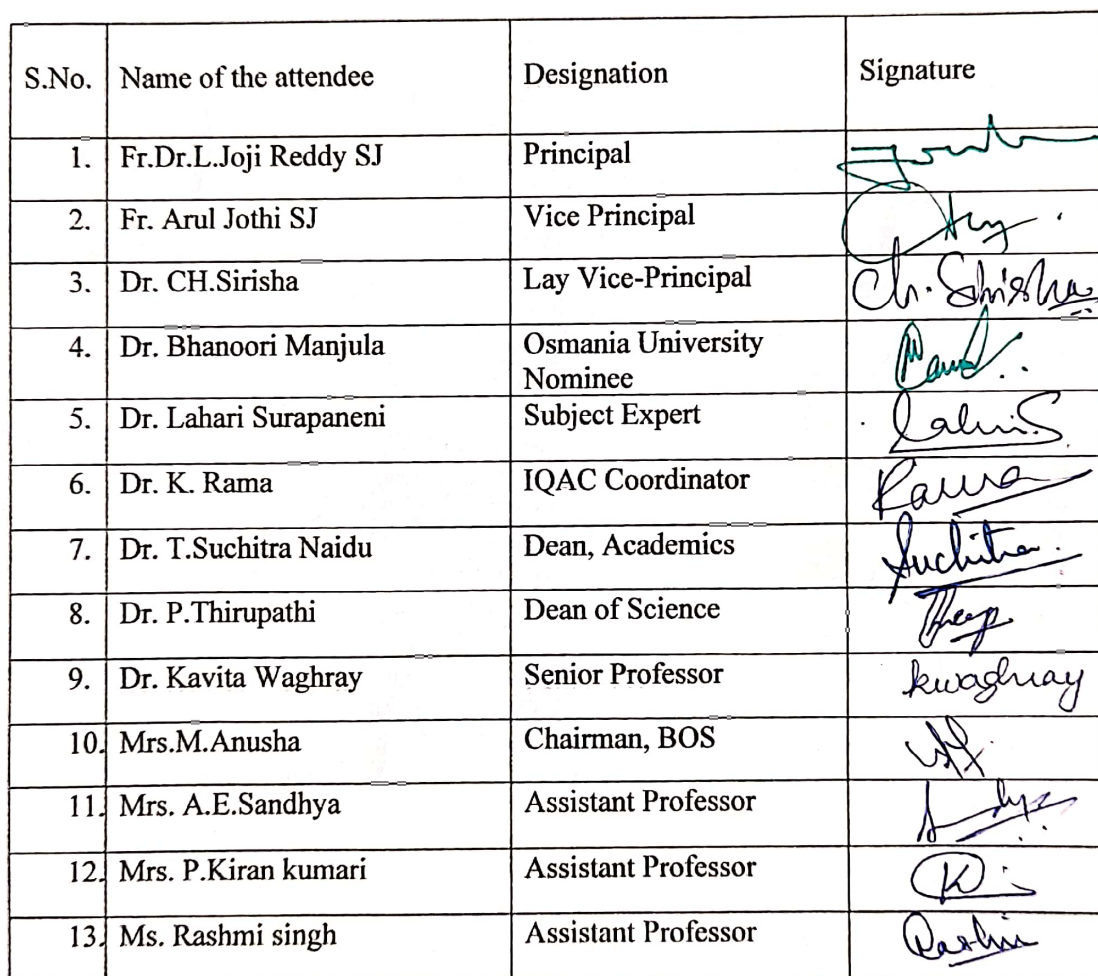 S.No. Name of the attendee Designation Signature
1. Fr.Dr.L.Joji Reddy SJ Principal
2. Fr. Arul Jothi SJ Vice Principal
3. Dr. CH.Sirisha Lay Vice-Principal Ch. Sirisha
4. Dr. Bhanoori Manjula Osmania University
Nominee
5. Dr. Lahari Surapaneni Subject Expert Lahari S
6. Dr. K. Rama IQAC Coordinator Rama
7. Dr. T.Suchitra Naidu Dean, Academics Suchitra
8. Dr. P.Thirupathi Dean of Science
9. Dr. Kavita Waghray Senior Professor kwaghray
10. Mrs.M.Anusha Chairman, BOS
11. Mrs. A.E.Sandhya Assistant Professor
12. Mrs. P.Kiran kumari Assistant Professor
13. Ms. Rashmi singh Assistant Professor Rashmi